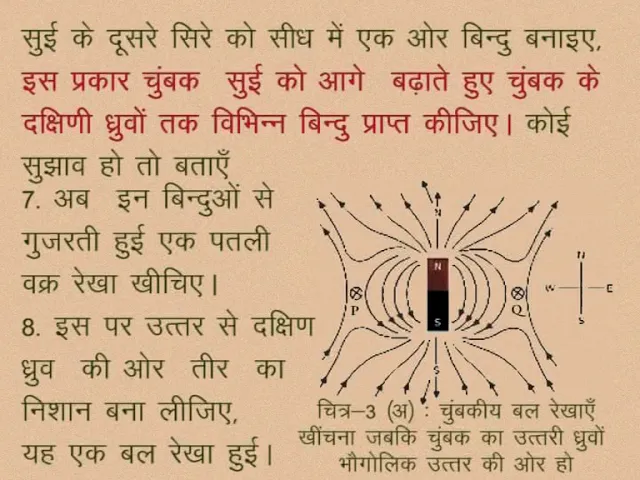 सुई के दूसरे सिरे को सीध में एक ओर बिन्दु बनाइए,
इस प्रकार चुंबक सुई को आगे बढ़ाते हुए चुंबक के
दक्षिणी ध्रुवों तक विभिन्न बिन्दु प्राप्त कीजिए। कोई
सुझाव हो तो बताएँ
7. अब इन बिन्दुओं से
गुजरती हुई एक पतली
वक्र रेखा खीचिए।
8. इस पर उत्तर से दक्षिण
ध्रुव की ओर तीर का
निशान बना लीजिए,
यह एक बल रेखा हुई।
N
N
S
S
P
Q
N
W E
S
चित्र–3 (अ) : चुंबकीय बल रेखाएँ
खींचना जबकि चुंबक का उत्तरी ध्रुवों
भौगोलिक उत्तर की ओर हो